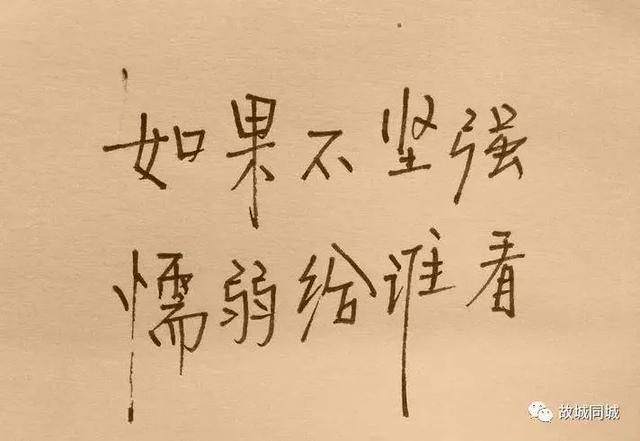 如果不坚强
懦弱给谁看
故城同城